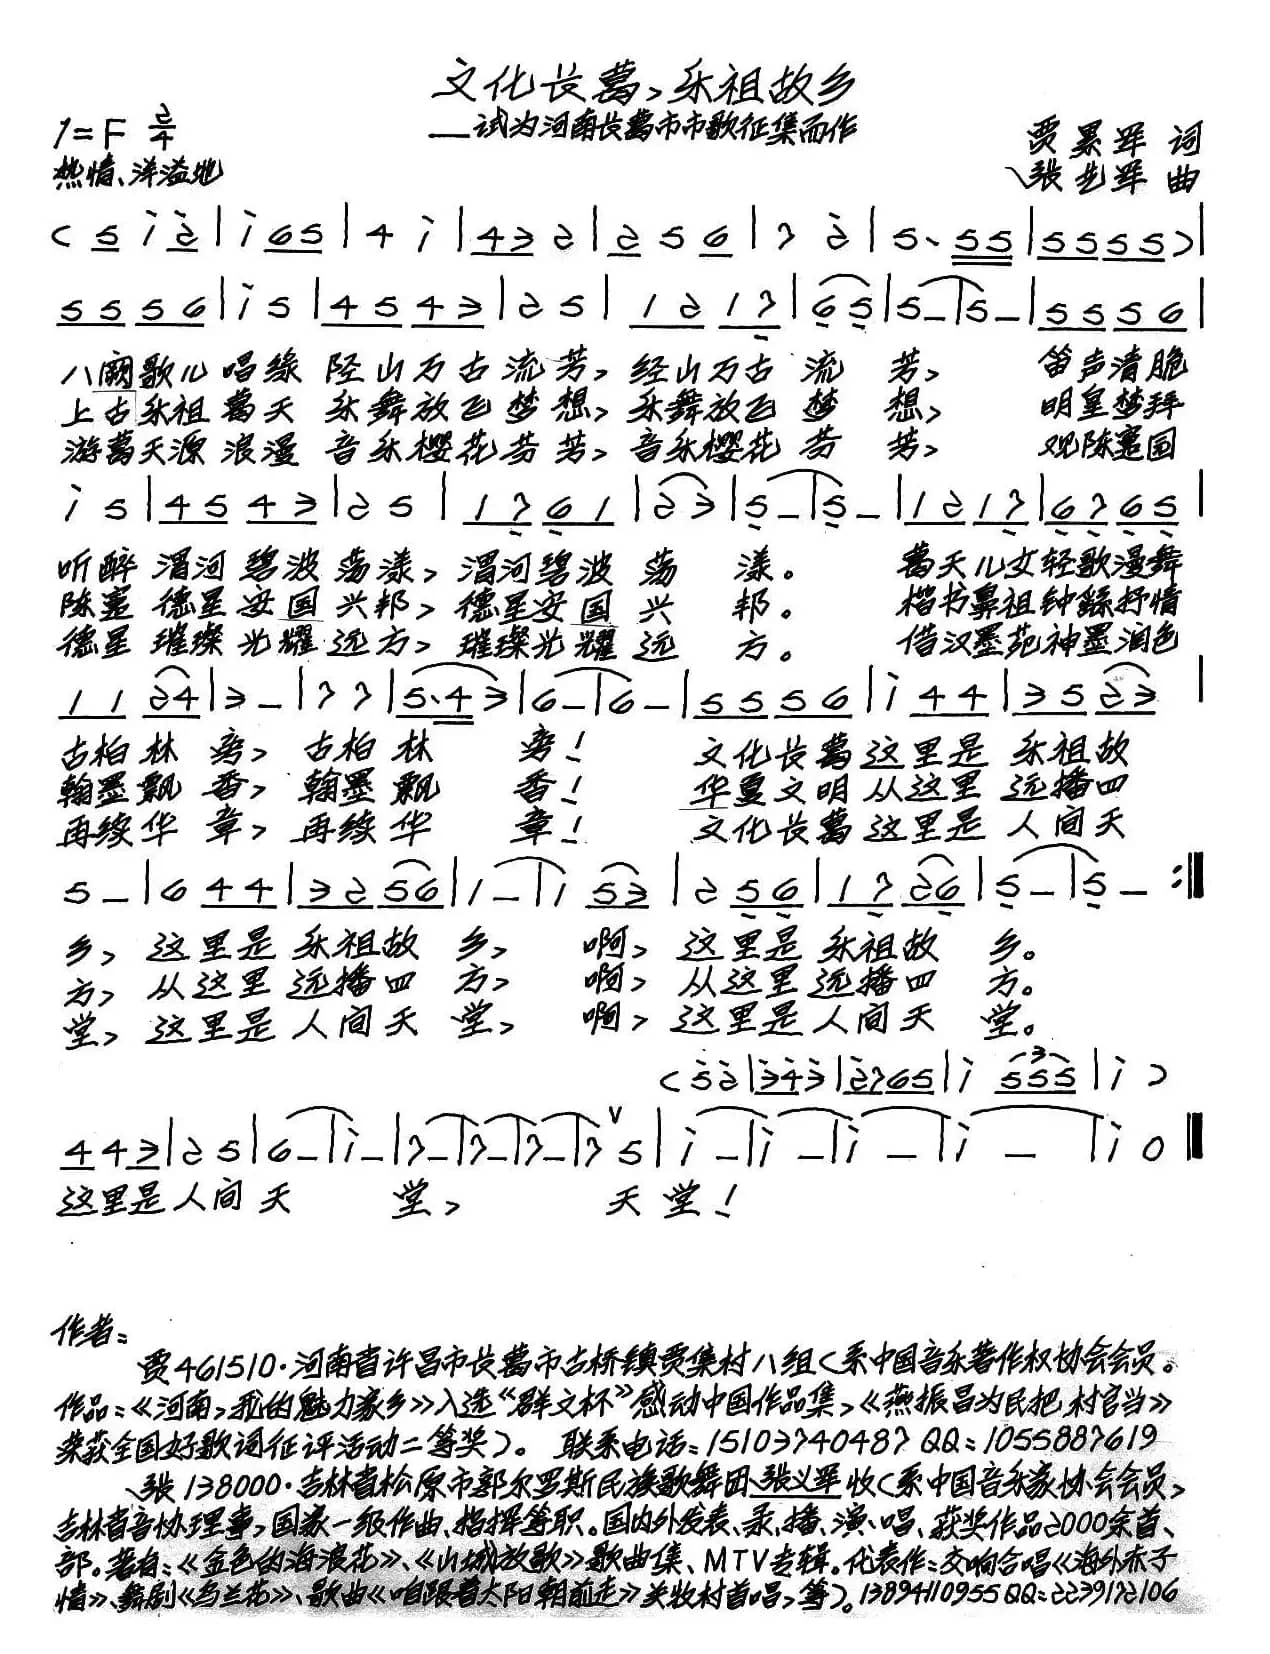 文化长葛,乐祖故乡
——试为河南长葛市市歌征集而作
1=F 2/4
贾累军 词
热情、洋溢地
张艺军 曲
( 5 i 2 | i 65 | 4 i | 43 2 | 2 5 6 | 7 2 | 5. 55 | 5555 ) |
5556 | i 5 | 4543 | 2 5 | 1217 | 6 5 | 5 – | 5 – | 5556 |
八阕歌儿唱缘 陉山万古流芳,经山万古流芳, 笛声清脆
上古乐祖葛天 乐舞放飞梦想,乐舞放飞梦想, 明皇梦拜
游葛天源浪漫 音乐樱花芬芳,音乐樱花芬芳, 观陈寔园
i 5 | 4543 | 2 5 | 1761 | 2 3 | 5 – | 5 – | 1217 | 6765 |
听醉渭河碧波荡漾,渭河碧波荡漾。 葛天儿女轻歌漫舞
陈寔德星安国兴邦,德星安国兴邦。 楷书鼻祖钟繇抒情
德星璀璨光耀远方,璀璨光耀远方。 借汉墨苑神墨润色
1 1 24 | 3 – | 7 7 | 5.4 3 | 6 – | 6 – | 5556 | i 44 | 35 23 |
古柏林旁,古柏林旁! 文化长葛这里是乐祖故
翰墨飘香,翰墨飘香! 华夏文明从这里远播四
再续华章,再续华章! 文化长葛这里是人间天
5 – | 6 44 | 32 56 | 1 – | 1 53 | 2 56 | 17 26 | 5 – | 5 – :||
乡,这里是乐祖故乡, 啊,这里是乐祖故乡。
方,从这里远播四方, 啊,从这里远播四方。
堂,这里是人间天堂, 啊,这里是人间天堂。
( 52 | 343 | 2765 | i 555 | i )
443 | 2 5 | 6 – | i – | 7 – | 7 – | 7 – | 7 5 | i – | i – | i – | i – | i 0 ||
这里是人间天堂, 天堂!
作者:
贾461510·河南省许昌市长葛市古桥镇贾集村八组(系中国音乐著作权协会会员。
作品:《河南,我的魅力家乡》入选“群文杯”感动中国作品集,《燕振昌为民把村官当》
荣获全国好歌词征评活动二等奖)。 联系电话:15103740487 QQ:1055887619
张138000·吉林省松原市郭尔罗斯民族歌舞团张义军收(系中国音乐家协会会员,
吉林省音协理事,国家一级作曲、指挥等职。国内外发表、录、播、演、唱、获奖作品2000余首、
部。著有:《金色的海浪花》、《山城放歌》歌曲集、MTV专辑。代表作:交响合唱《海外赤子
情》、舞剧《乌兰花》、歌曲《咱跟着太阳朝前走》关牧村首唱,等)。13894110955QQ:2239172106